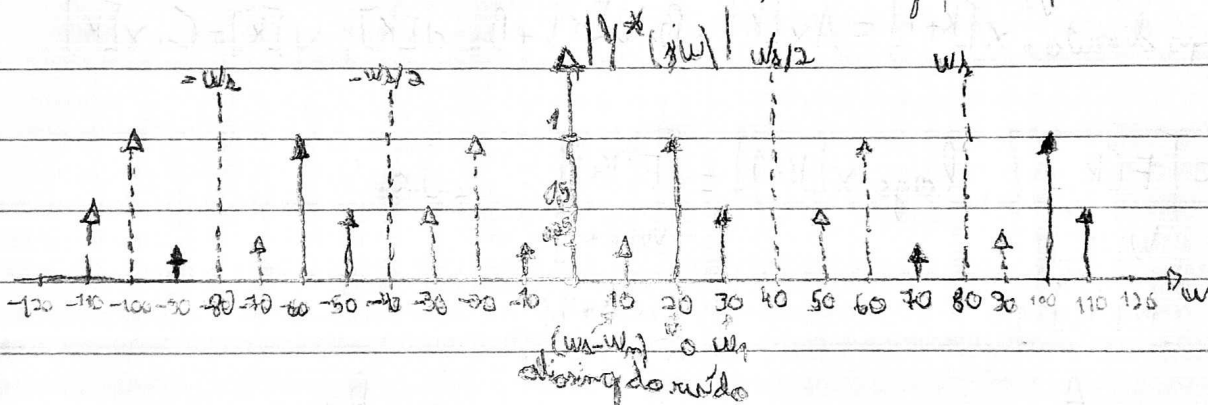 |Y*(jw)|
-ws -ws/2 ws/2 ws
1
0,5
0,25
-120 -110 -100 -90 -80 -70 -60 -50 -40 -30 -20 -10 10 20 30 40 50 60 70 80 90 100 110 120 w
(ws-wn) w1
aliasing do ruído